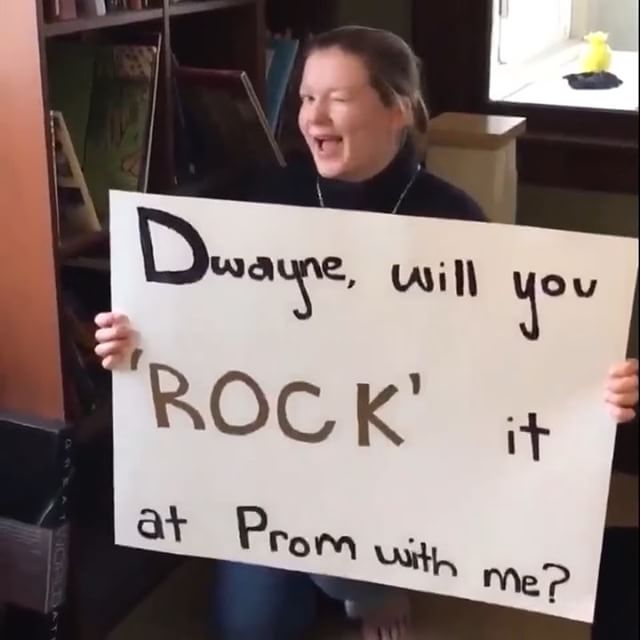 Dwayne, will you
'ROCK' it
at Prom with me?